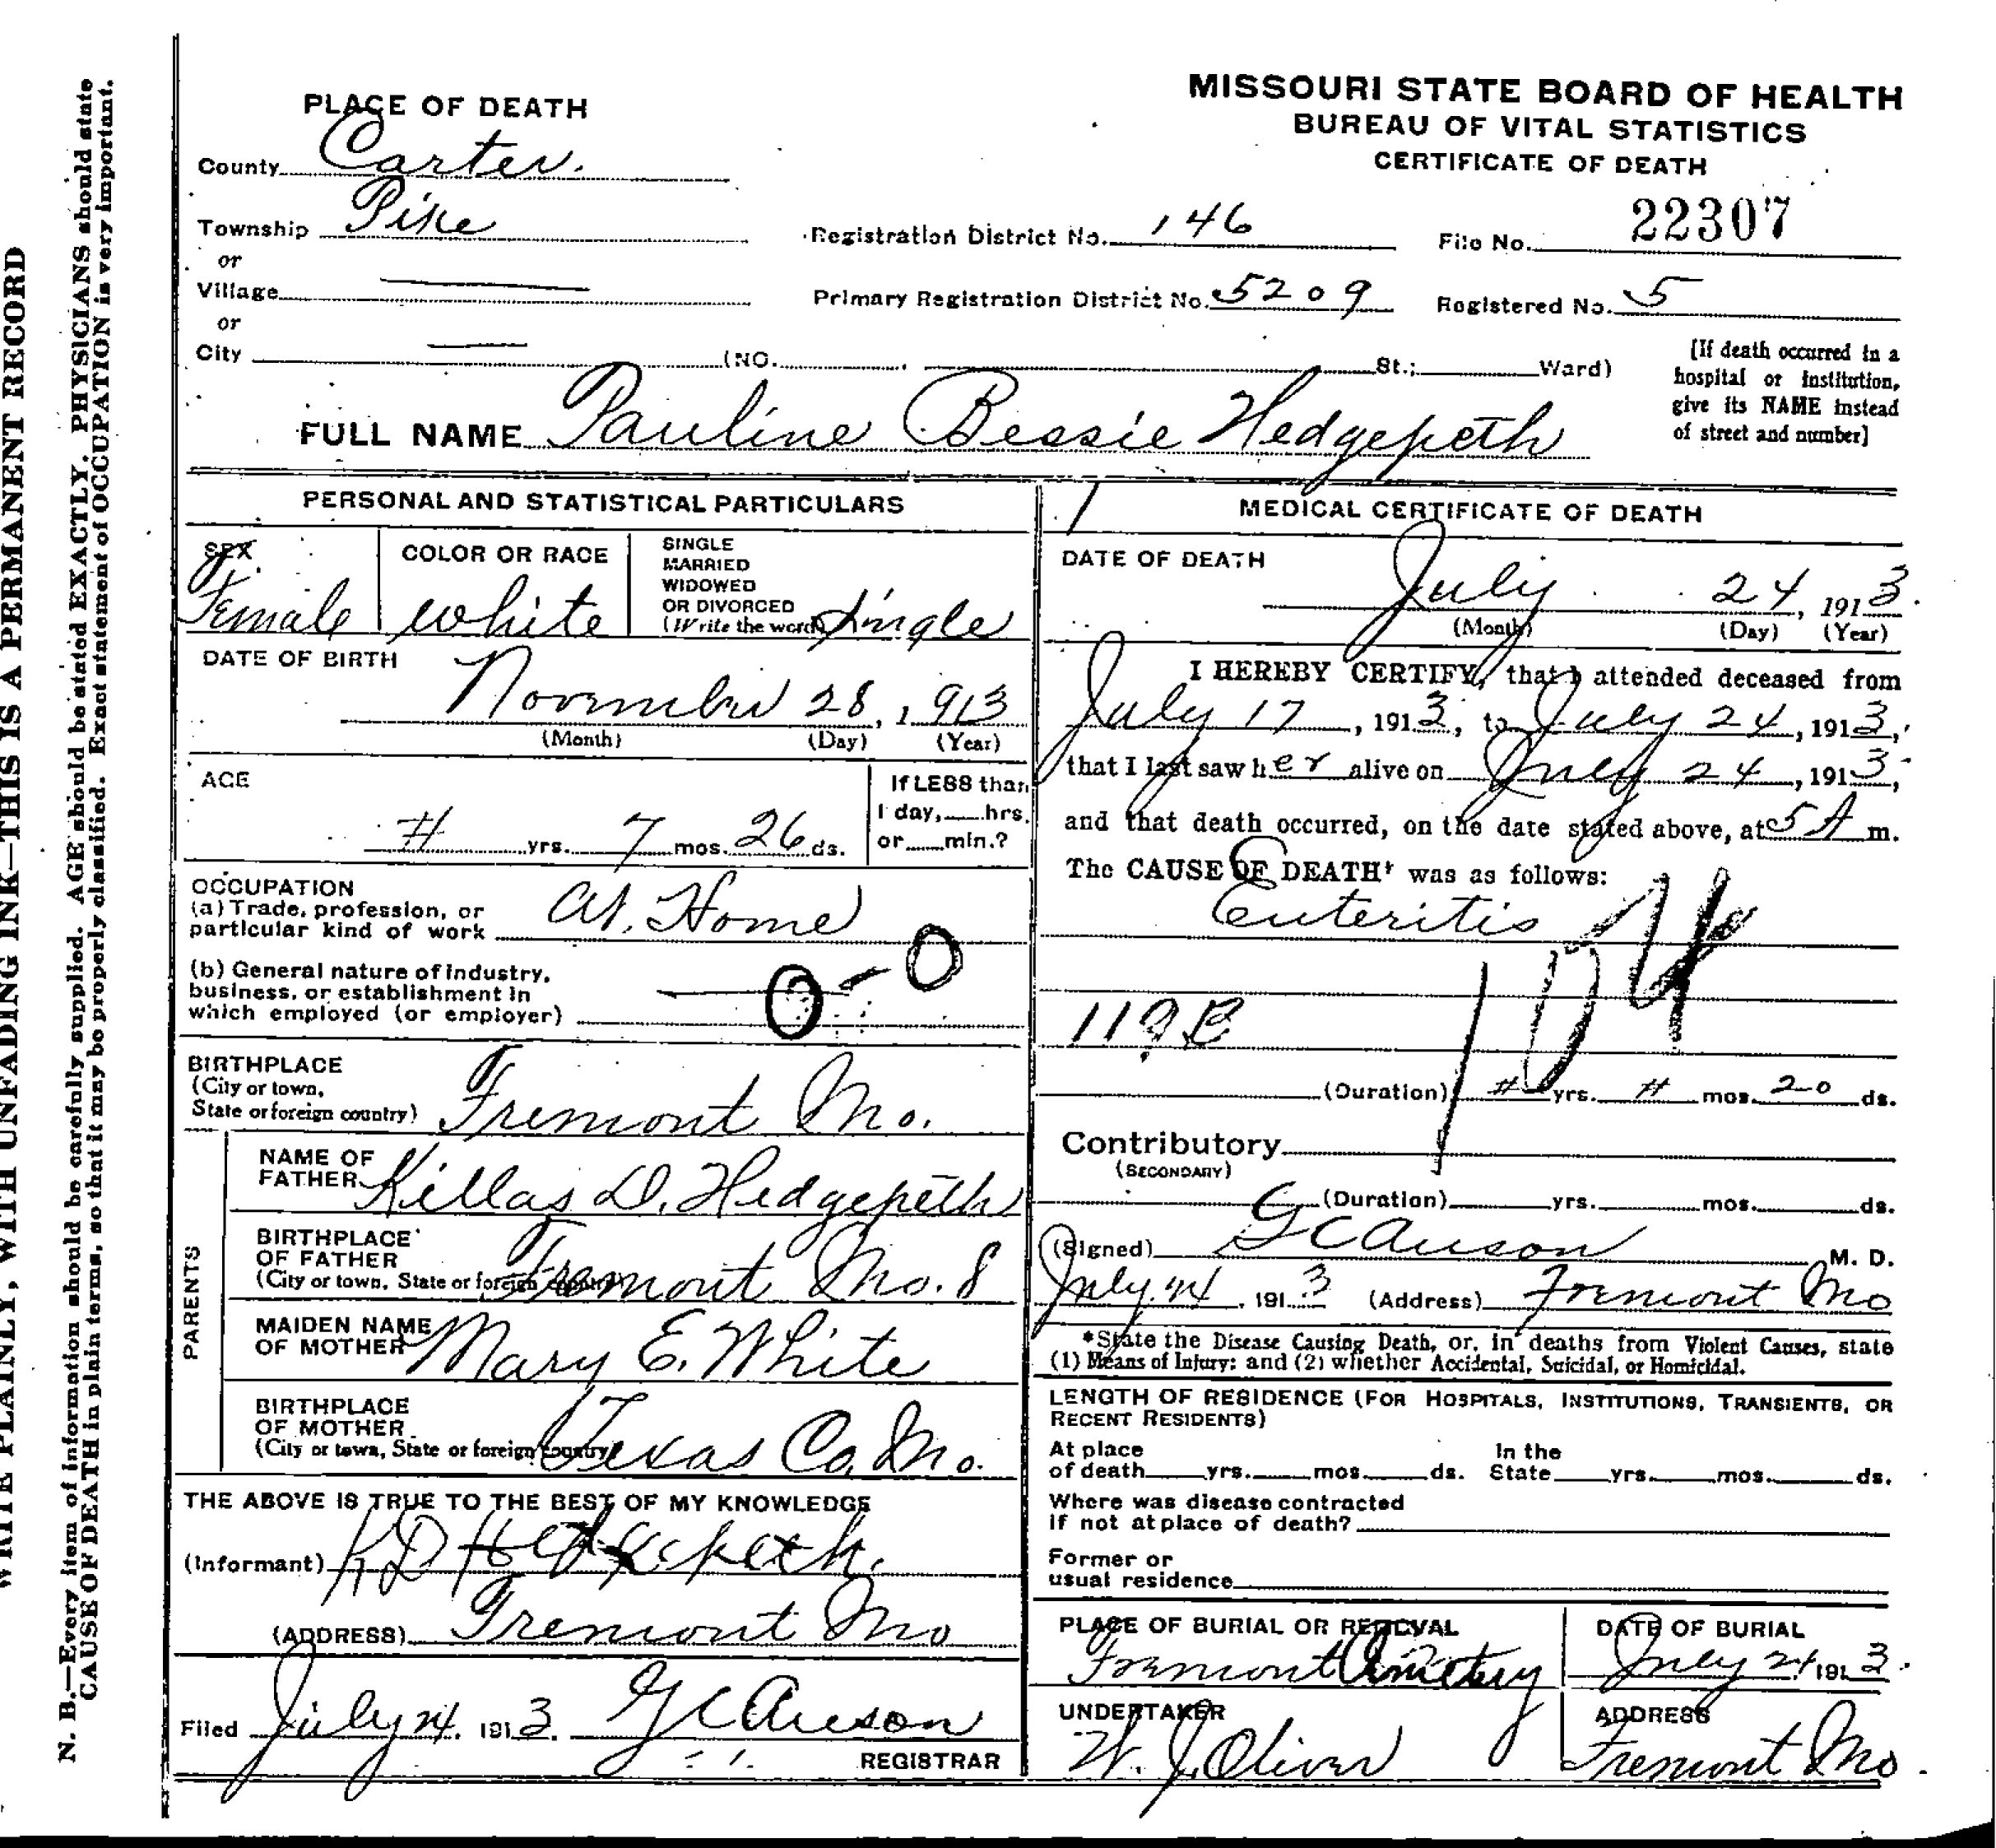 WRITE PLAINLY, WITH UNFADING INK—THIS IS A PERMANENT RECORD
N. B.—Every item of information should be carefully supplied. AGE should be stated EXACTLY. PHYSICIANS should state
CAUSE OF DEATH in plain terms, so that it may be properly classified. Exact statement of OCCUPATION is very important.
MISSOURI STATE BOARD OF HEALTH
BUREAU OF VITAL STATISTICS
CERTIFICATE OF DEATH
PLACE OF DEATH
County Carter.
Township Pike
or
Village
or
City (NO. St.; Ward)
Registration District No. 146
File No. 22307
Primary Registration District No. 5209
Registered No. 5
[If death occurred in a
hospital or institution,
give its NAME instead
of street and number]
FULL NAME Pauline Bessie Hedgepeth
PERSONAL AND STATISTICAL PARTICULARS
SEX
Female
COLOR OR RACE
White
SINGLE
MARRIED
WIDOWED
OR DIVORCED
(Write the word) Single
DATE OF BIRTH
November 28, 1913
(Month) (Day) (Year)
AGE
# yrs. 7 mos. 26 ds.
If LESS than
1 day, hrs.
or min.?
OCCUPATION
(a) Trade, profession, or
particular kind of work At Home
(b) General nature of industry,
business, or establishment in
which employed (or employer)
0-0
BIRTHPLACE
(City or town,
State or foreign country) Fremont Mo.
PARENTS
NAME OF
FATHER Killas D. Hedgepeth
BIRTHPLACE
OF FATHER
(City or town, State or foreign country) Fremont Mo. 8
MAIDEN NAME
OF MOTHER Mary E. White
BIRTHPLACE
OF MOTHER
(City or town, State or foreign country) Texas Co. Mo.
THE ABOVE IS TRUE TO THE BEST OF MY KNOWLEDGE
(Informant) K D Hedgepeth.
(ADDRESS) Fremont Mo
Filed July 24, 1913. G C Auson
REGISTRAR
MEDICAL CERTIFICATE OF DEATH
DATE OF DEATH
July 24, 1913.
(Month) (Day) (Year)
I HEREBY CERTIFY, that I attended deceased from
July 17, 1913, to July 24, 1913,
that I last saw her alive on July 24, 1913,
and that death occurred, on the date stated above, at 5 A m.
The CAUSE OF DEATH* was as follows:
Enteritis
104
119 B
(Duration) # yrs. # mos. 20 ds.
Contributory
(SECONDARY)
(Duration) yrs. mos. ds.
(Signed) G C Auson M. D.
July 24, 1913 (Address) Fremont Mo
*State the Disease Causing Death, or, in deaths from Violent Causes, state
(1) Means of Injury; and (2) whether Accidental, Suicidal, or Homicidal.
LENGTH OF RESIDENCE (FOR HOSPITALS, INSTITUTIONS, TRANSIENTS, OR
RECENT RESIDENTS)
At place In the
of death yrs. mos. ds. State yrs. mos. ds.
Where was disease contracted
if not at place of death?
Former or
usual residence
PLACE OF BURIAL OR REMOVAL
Fremont Cemetery
DATE OF BURIAL
July 24 1913.
UNDERTAKER
W. J. Oliver
ADDRESS
Fremont Mo.